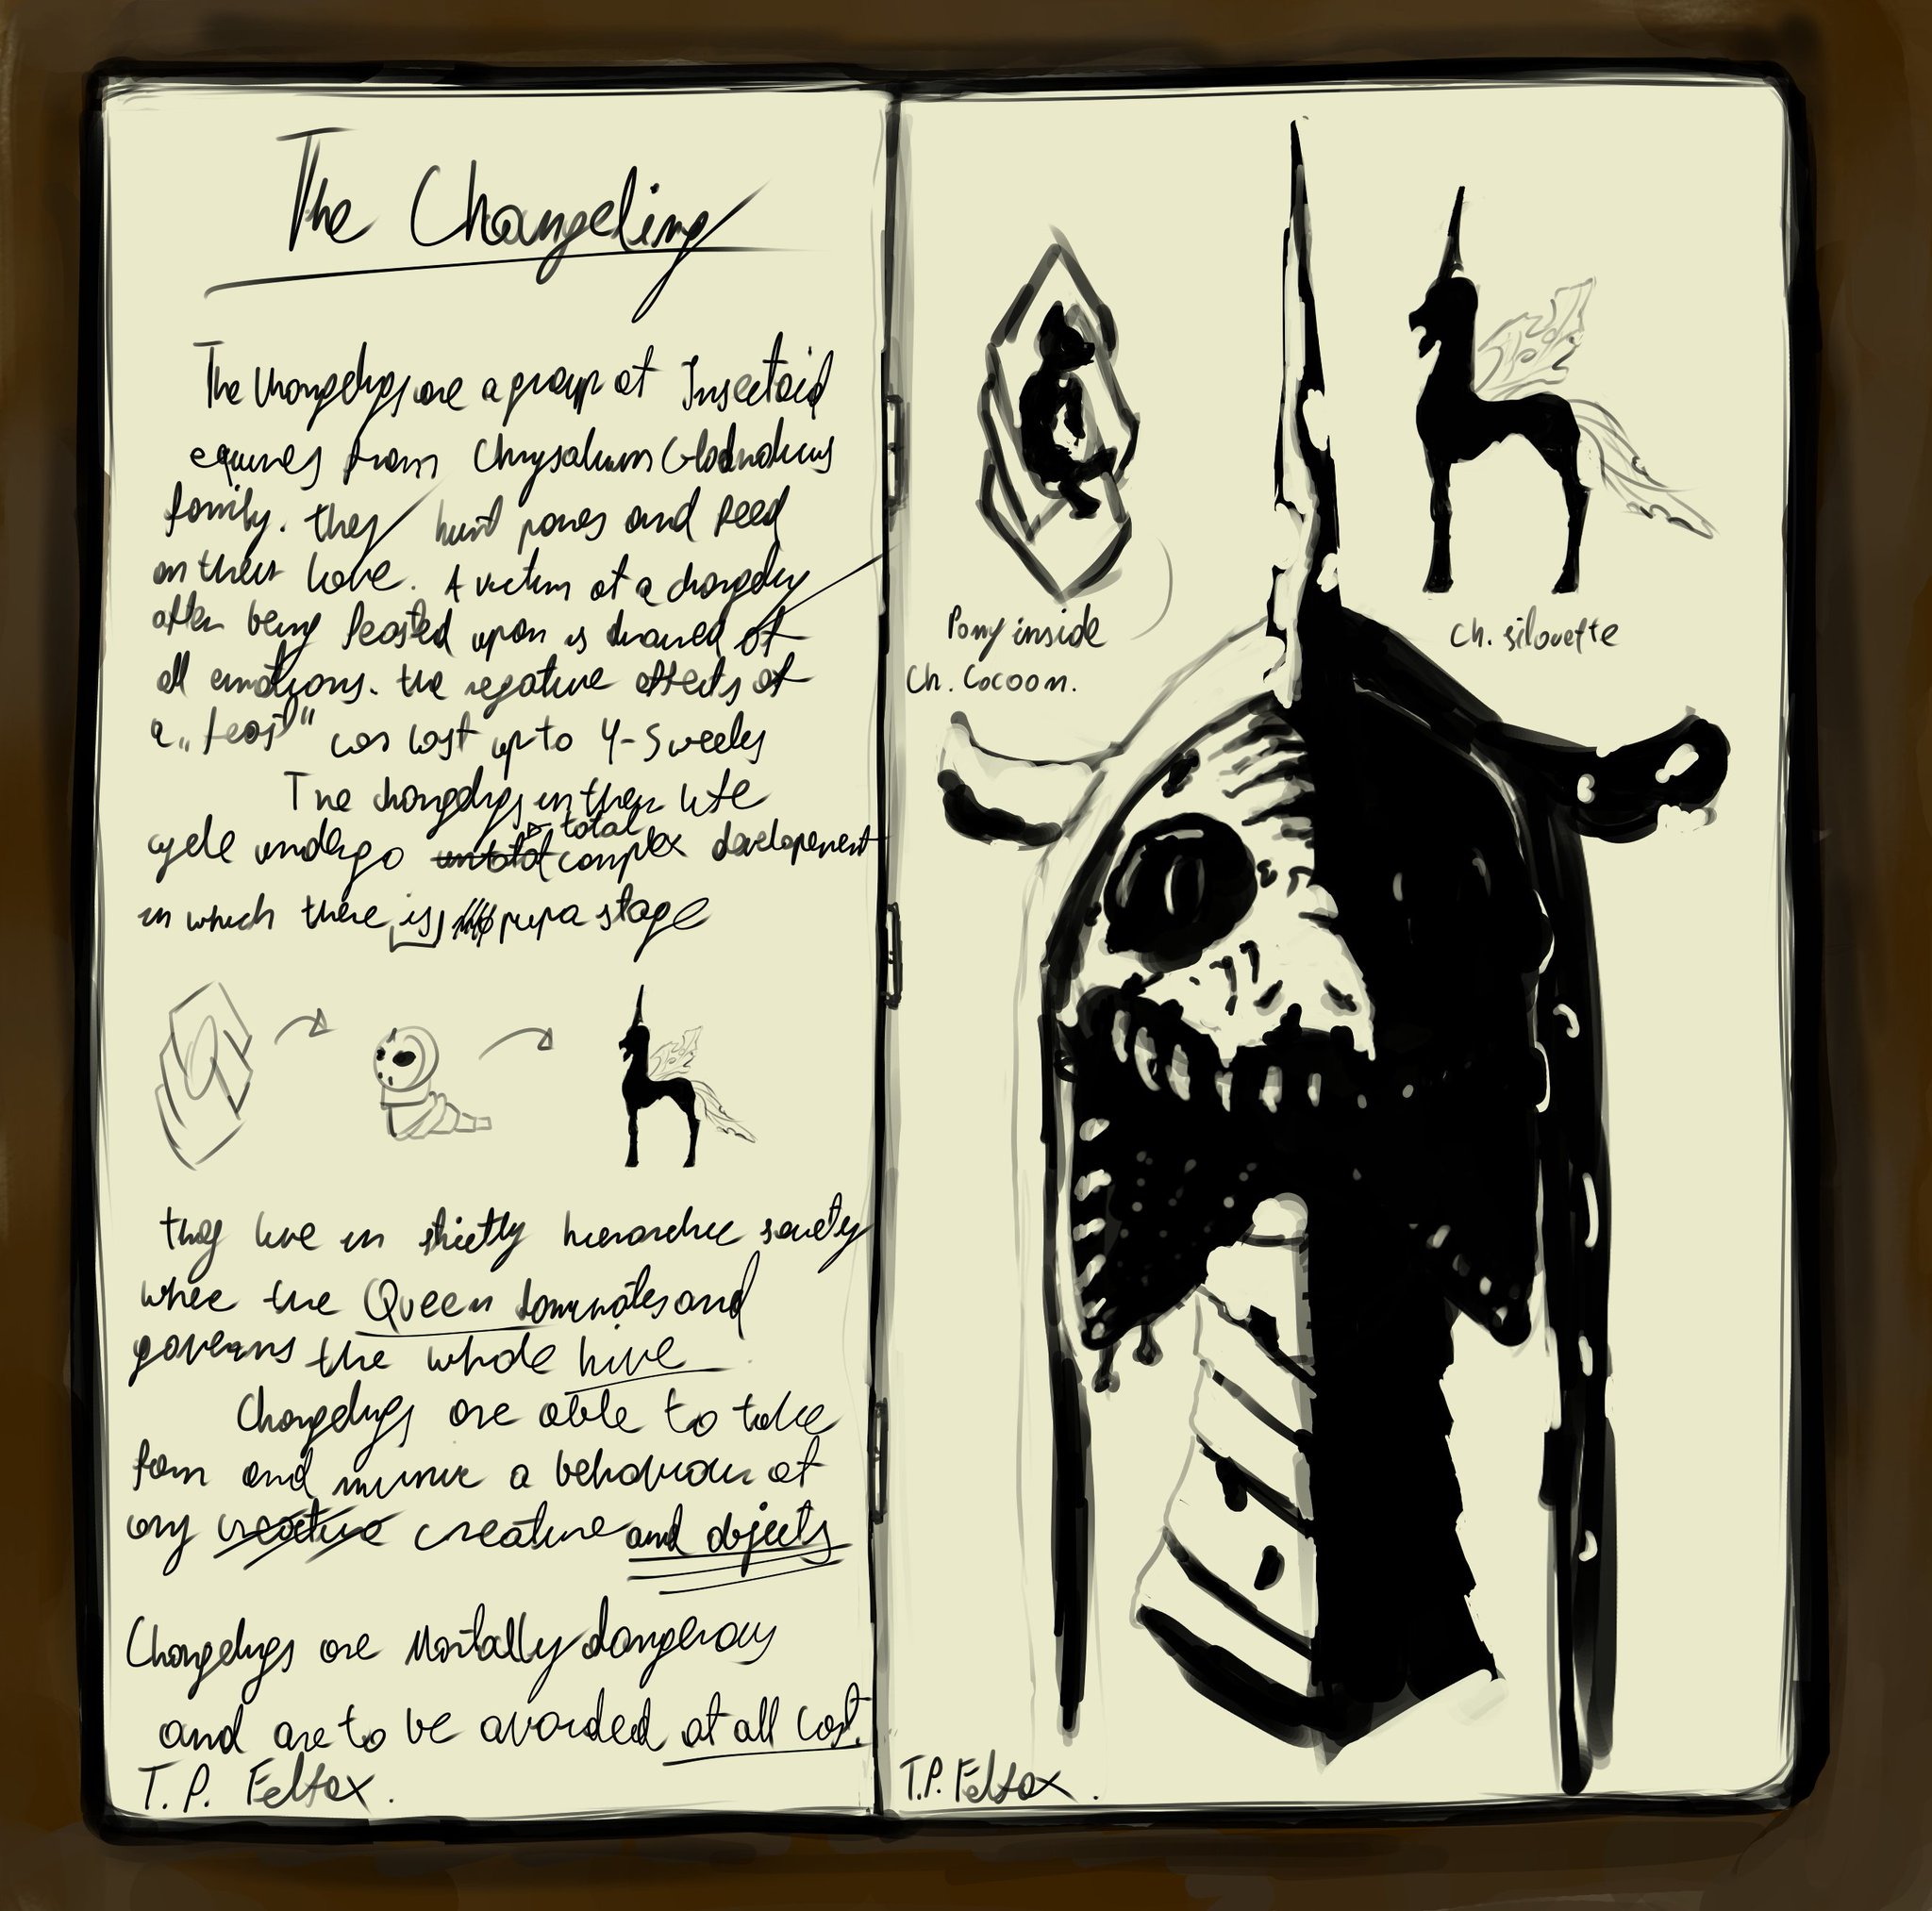 The Changeling
The Changelings are a group of Insectoid
equines from Chrysalium
family. they hunt ponies and feed
on their love. A victim of a changeling
after being feasted upon is drained of
all emotions. the negative effects of
a „feast" can last up to 4-5 weeks
The changelings in their life
total
cycle undergo complex developement
in which there is pupa stage
they live in strictly hierarchic society
where the Queen dominates and
governs the whole hive
Changelings are able to take
form and mimic a behaviour of
any creature creature and objects
Changelings are Mortally dangerous
and are to be avoided at all cost.
T. P. Felfox.
Pony inside
Ch. Cocoon.
Ch. silouette
T.P. Felfox.